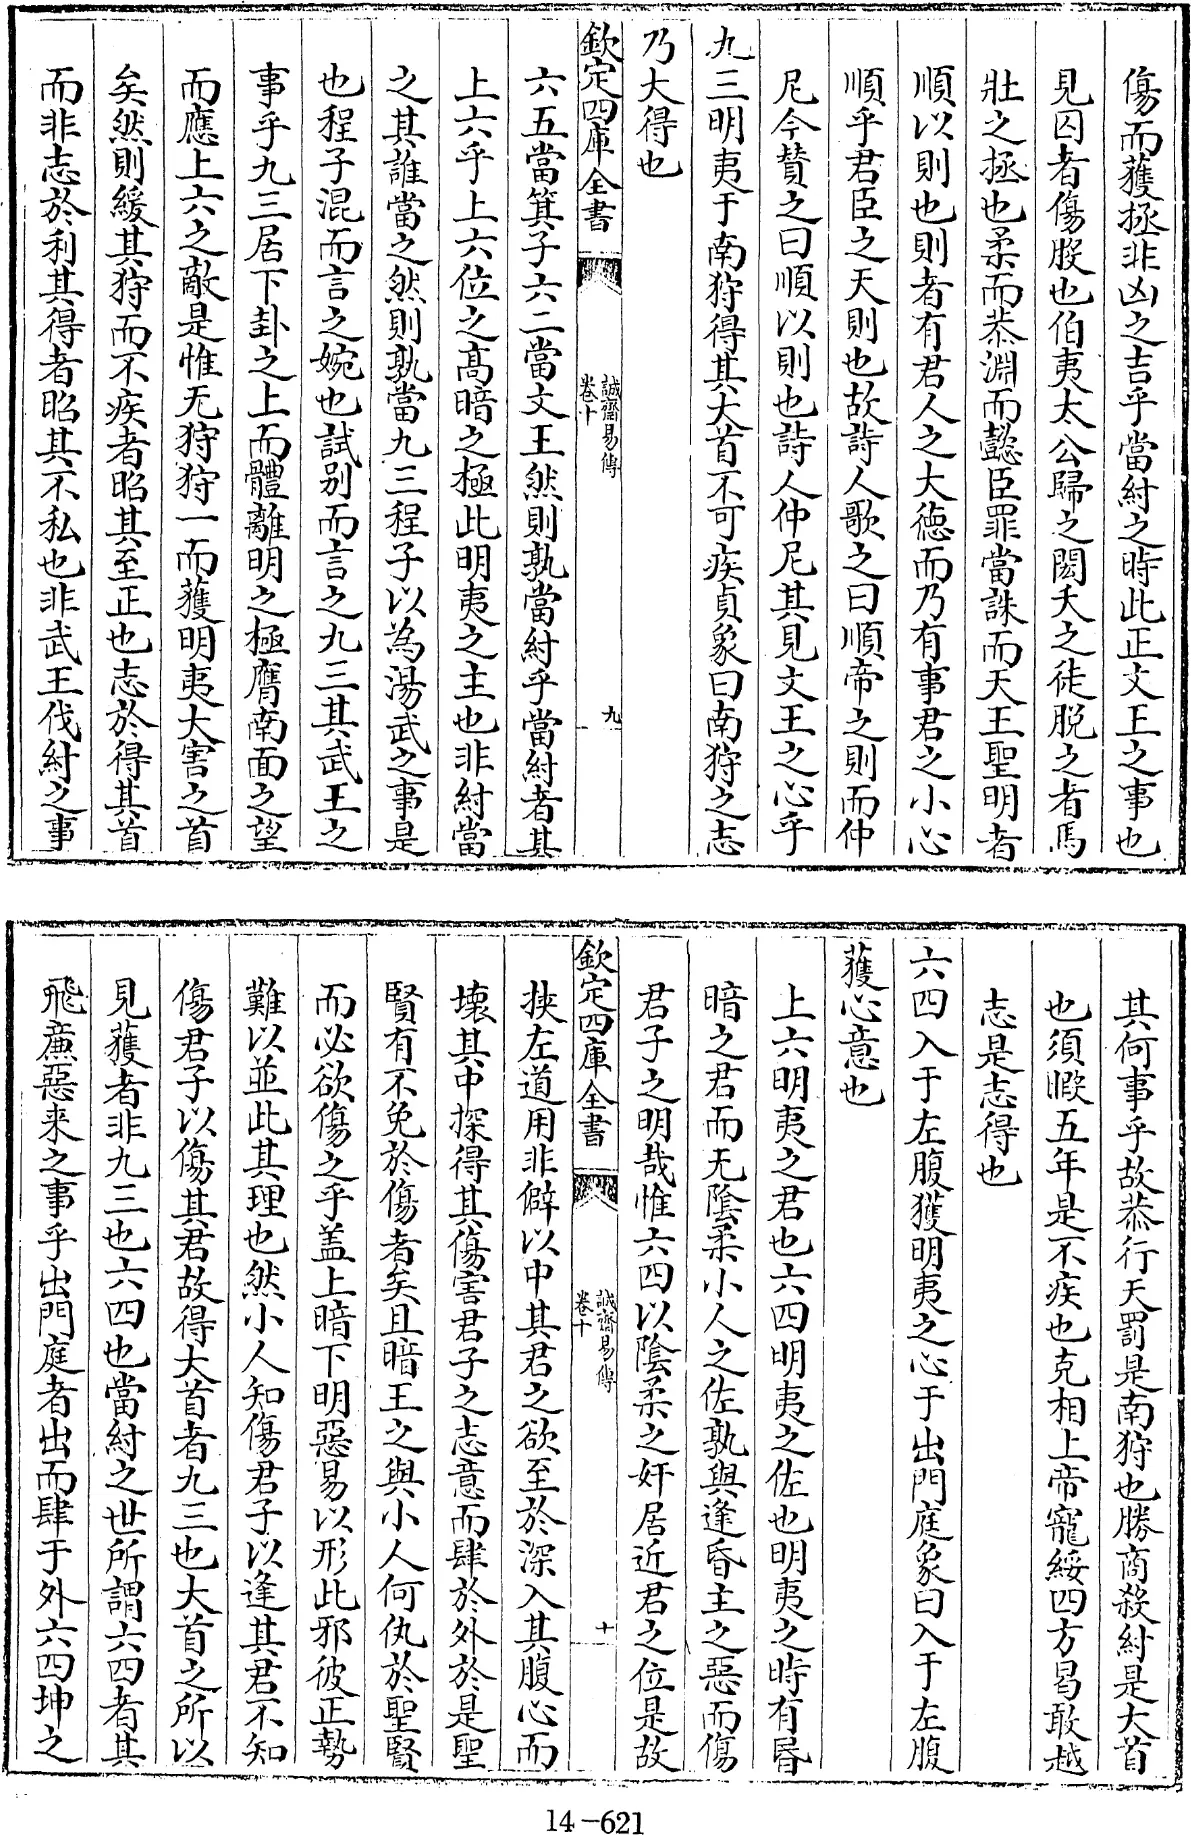 傷而獲拯非凶之吉乎當紂之時此正文王之事也
見囚者傷股也伯夷太公歸之閎夭之徒脱之者馬
壯之拯也柔而恭淵而懿臣罪當誅而天王聖明者
順以則也則者有君人之大徳而乃有事君之小心
順乎君臣之天則也故詩人歌之曰順帝之則而仲
尼今賛之曰順以則也詩人仲尼其見文王之心乎
九三明夷于南狩得其大首不可疾貞象曰南狩之志
乃大得也
欽定四庫全書
誠齋易傳
卷十
九
六五當箕子六二當文王然則孰當紂乎當紂者其
上六乎上六位之髙暗之極此明夷之主也非紂當
之其誰當之然則孰當九三程子以為湯武之事是
也程子混而言之婉也試别而言之九三其武王之
事乎九三居下卦之上而體離明之極膺南面之望
而應上六之敵是惟无狩狩一而獲明夷大害之首
矣然則緩其狩而不疾者昭其至正也志於得其首
而非志於利其得者昭其不私也非武王伐紂之事
其何事乎故恭行天罰是南狩也勝商殺紂是大首
也須暇五年是不疾也克相上帝寵綏四方曷敢越
志是志得也
六四入于左腹獲明夷之心于出門庭象曰入于左腹
獲心意也
上六明夷之君也六四明夷之佐也明夷之時有昬
暗之君而无陰柔小人之佐孰與逢昏主之惡而傷
君子之明哉惟六四以陰柔之奸居近君之位是故
欽定四庫全書
誠齋易傳
卷十
十
挾左道用非僻以中其君之欲至於深入其腹心而
壊其中探得其傷害君子之志意而肆於外於是聖
賢有不免於傷者矣且暗王之與小人何仇於聖賢
而必欲傷之乎盖上暗下明惡易以形此邪彼正勢
難以並此其理也然小人知傷君子以逢其君不知
傷君子以傷其君故得大首者九三也大首之所以
見獲者非九三也六四也當紂之世所謂六四者其
飛亷惡来之事乎出門庭者出而肆于外六四坤之
14-621